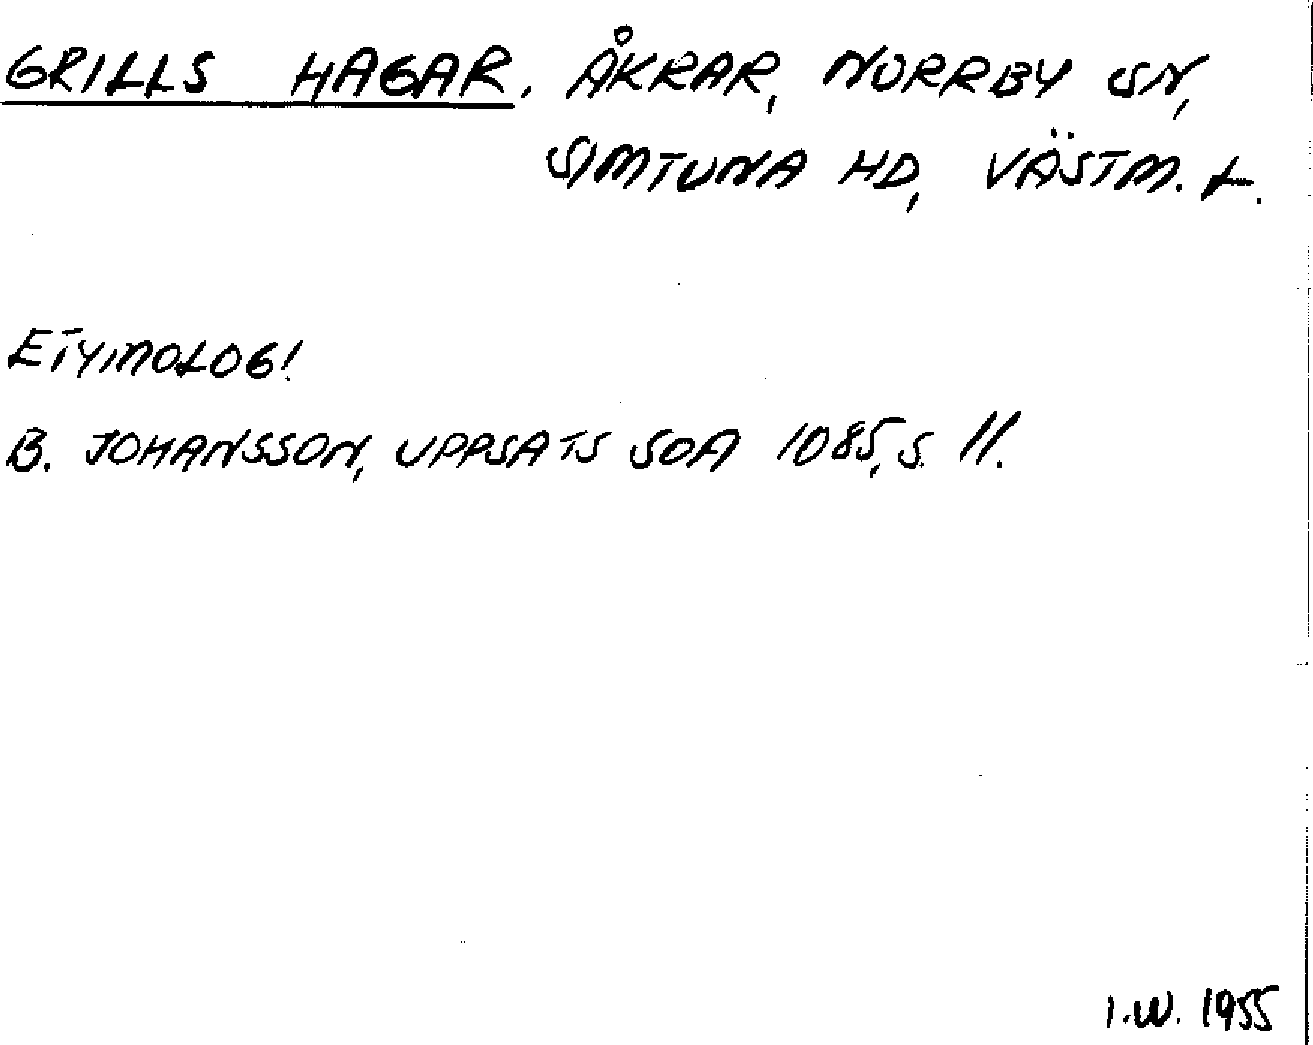 GRILLS HAGAR. ÅKRAR, NORRBY SN,
SIMTUNA HD, VÄSTM. L.
ETYMOLOG!
B. JOHANSSON, UPPSATS SOA 1085, S. 11.
I.W. 1955